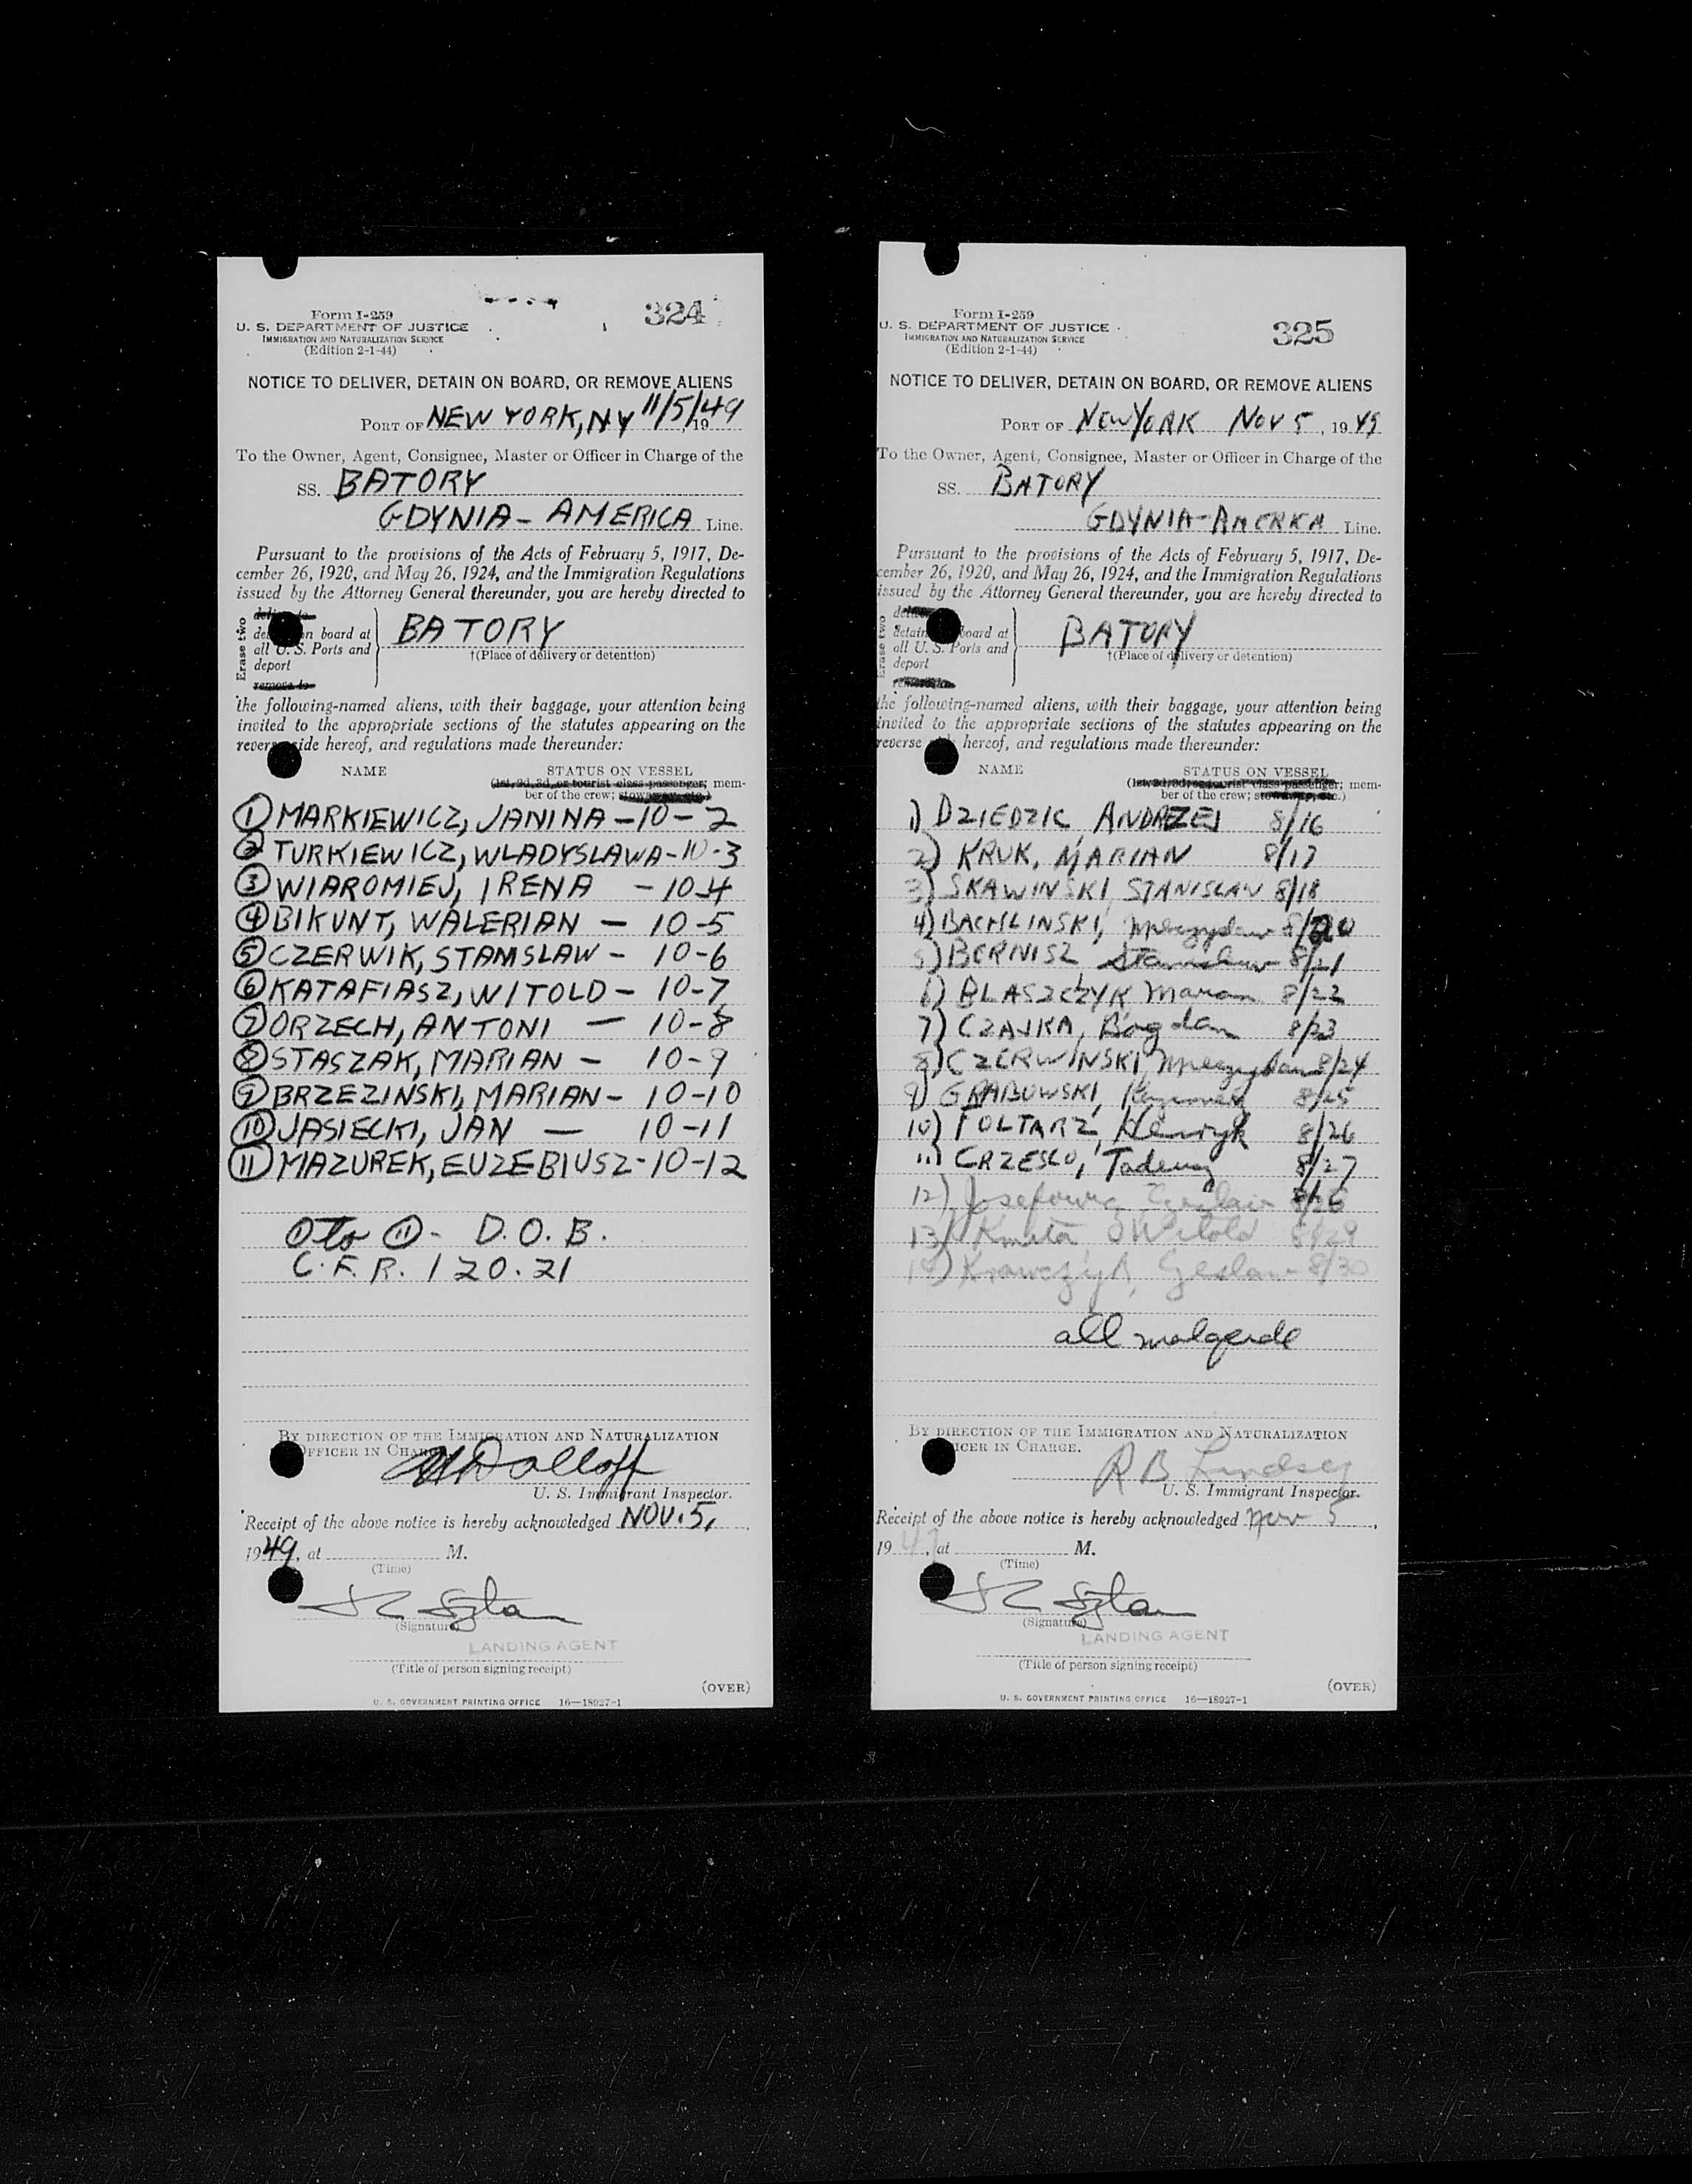 324
Form I-259
U. S. DEPARTMENT OF JUSTICE
IMMIGRATION AND NATURALIZATION SERVICE
(Edition 2-1-44)
NOTICE TO DELIVER, DETAIN ON BOARD, OR REMOVE ALIENS
PORT OF NEW YORK, NY 11/5/49, 19
To the Owner, Agent, Consignee, Master or Officer in Charge of the
SS. BATORY
GDYNIA - AMERICA Line.
Pursuant to the provisions of the Acts of February 5, 1917, De-
cember 26, 1920, and May 26, 1924, and the Immigration Regulations
issued by the Attorney General thereunder, you are hereby directed to
Erase two
deliver to
detain on board at
all U. S. Ports and
deport
remove to
BATORY
†(Place of delivery or detention)
the following-named aliens, with their baggage, your attention being
invited to the appropriate sections of the statutes appearing on the
reverse side hereof, and regulations made thereunder:
NAME STATUS ON VESSEL
(1st, 2d, 3d, or tourist class passenger; mem-
ber of the crew; stowaway, etc.)
1 MARKIEWICZ, JANINA - 10 - 2
2 TURKIEWICZ, WLADYSLAWA - 10 - 3
3 WIAROMIEJ, IRENA - 10-4
4 BIKUNT, WALERIAN - 10-5
5 CZERWIK, STANISLAW - 10-6
6 KATAFIASZ, WITOLD - 10-7
7 ORZECH, ANTONI - 10-8
8 STASZAK, MARIAN - 10-9
9 BRZEZINSKI, MARIAN - 10-10
10 JASIECKI, JAN - 10-11
11 MAZUREK, EUZEBIUSZ - 10-12
1 to 11 - D.O.B.
C.F.R. 120.21
BY DIRECTION OF THE IMMIGRATION AND NATURALIZATION
OFFICER IN CHARGE.
Dolloff
U. S. Immigrant Inspector.
Receipt of the above notice is hereby acknowledged NOV. 5,
1949, at M.
(Time)
(Signature)
LANDING AGENT
(Title of person signing receipt)
(OVER)
U. S. GOVERNMENT PRINTING OFFICE 16—18927-1
325
Form I-259
U. S. DEPARTMENT OF JUSTICE
IMMIGRATION AND NATURALIZATION SERVICE
(Edition 2-1-44)
NOTICE TO DELIVER, DETAIN ON BOARD, OR REMOVE ALIENS
PORT OF NEW YORK NOV 5, 1949
To the Owner, Agent, Consignee, Master or Officer in Charge of the
SS. BATORY
GDYNIA-AMERICA Line.
Pursuant to the provisions of the Acts of February 5, 1917, De-
cember 26, 1920, and May 26, 1924, and the Immigration Regulations
issued by the Attorney General thereunder, you are hereby directed to
Erase two
detain board at
all U. S. Ports and
deport
BATORY
†(Place of delivery or detention)
the following-named aliens, with their baggage, your attention being
invited to the appropriate sections of the statutes appearing on the
reverse hereof, and regulations made thereunder:
NAME STATUS ON VESSEL
(1st, 2d, 3d, or tourist class passenger; mem-
ber of the crew; stowaway, etc.)
1) DZIEDZIC, ANDRZEJ 8/16
2) KRUK, MARIAN 8/17
3) SKAWINSKI, STANISLAW 8/18
4) BACHLINSKI, Mieczyslaw 8/20
5) BERNISZ Stanislaw 8/21
6) BLASZCZYK Marian 8/22
7) CZAJKA, Bogdan 8/23
8) CZERWINSKI, Mieczyslaw 8/24
9) GRABOWSKI, 8/25
10) FOLTARZ, Henryk 8/26
11) 8/27
12)
13) Kmita Witold 8/29
14) Krawczyk, Czeslaw - 8/30
all
BY DIRECTION OF THE IMMIGRATION AND NATURALIZATION
OFFICER IN CHARGE.
R B Lindsey
U. S. Immigrant Inspector.
Receipt of the above notice is hereby acknowledged Nov 5,
19 , at M.
(Time)
(Signature)
LANDING AGENT
(Title of person signing receipt)
(OVER)
U. S. GOVERNMENT PRINTING OFFICE 16—18927-1